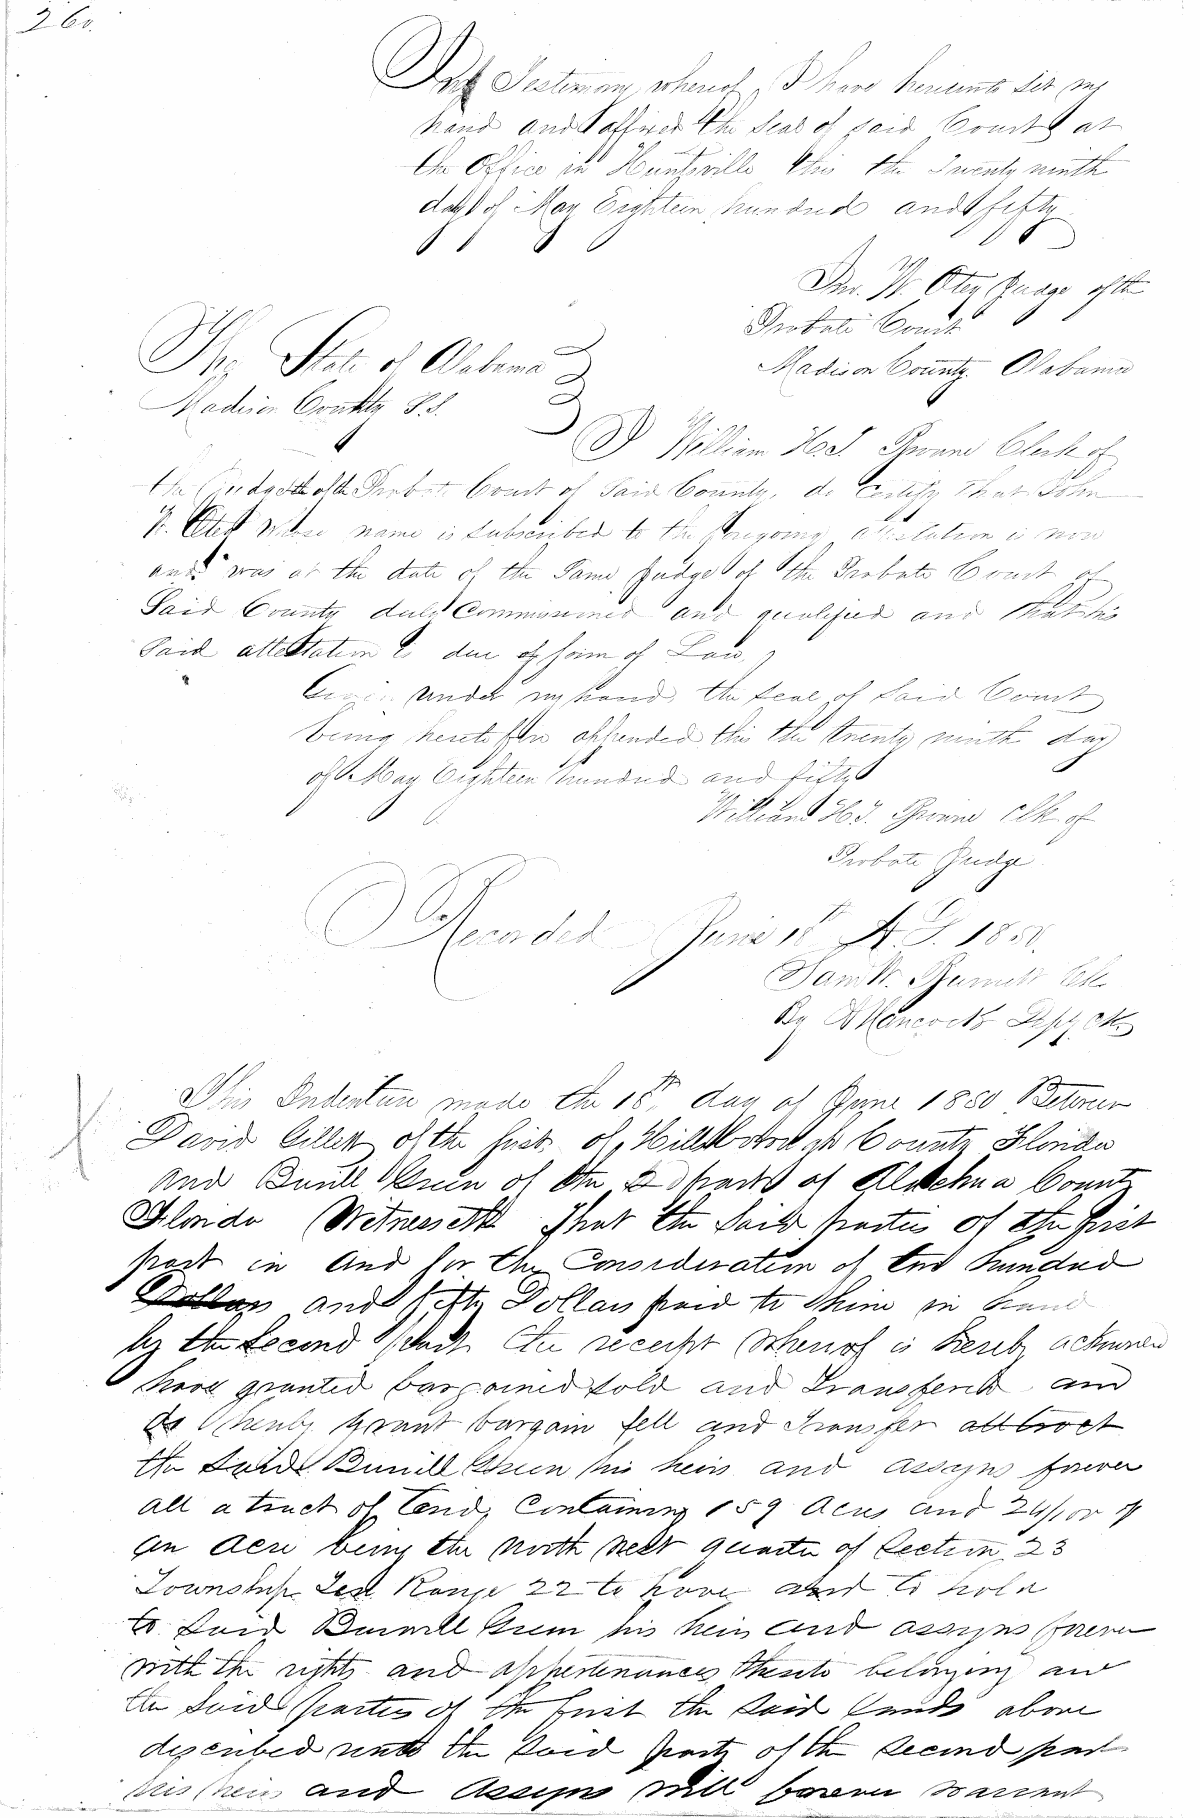 260.
In Testimony whereof, I have hereunto set my
hand and affixed the Seal of said Court at
the Office in Huntsville this the Twenty ninth
day of May Eighteen hundred and fifty
Jno. W. Otey Judge of the
Probate Court
Madison County. Alabama
The State of Alabama
Madison County S.S.
I William H. J. Browne Clerk of
the Judge of the Probate Court of Said County, do certify that John
W. Otey whose name is subscribed to the foregoing attestation is now
and was at the date of the Same Judge of the Probate Court of
Said County duly Commissioned and qualified and that his
Said attestation is due of form of Law,
Given under my hand, the seal of Said Court
being heretofore appended this the twenty ninth day
of May Eighteen hundred and fifty
William H. J. Browne Clk of
Probate Judge
Recorded June 18th A. D. 1850.
Saml W. Burnett Clk.
By Hancock Depy Clk.
This Indenture made the 18th day of June 1850 Between
David Gillett of the first. of Hillsborough County Florida
and Burill Green of the 2d part of Alachua County
Florida Witnesseth That the Said parties of the first
part in and for the Consideration of two hundred
Dollars and fifty Dollars paid to thim in hand
by the Second part the receipt whereof is hereby acknowed
have granted bargained sold and Transfered and
do hereby grant bargain sell and Transfer all tract
the Said Burrill Green his heirs and assigns forever
all a tract of Land, Containing 159 Acres and 24/100 of
an Acre being the north west quarter of Section 23
Township Ten Range 22 to have and to hold
to Said Burrill Green his heirs and assigns forever
with the rights and appertenances thereto belonging and
the Said parties of the first the Said Lands above
described unto the Said party of the Second part
his heirs and Assigns will forever warrant